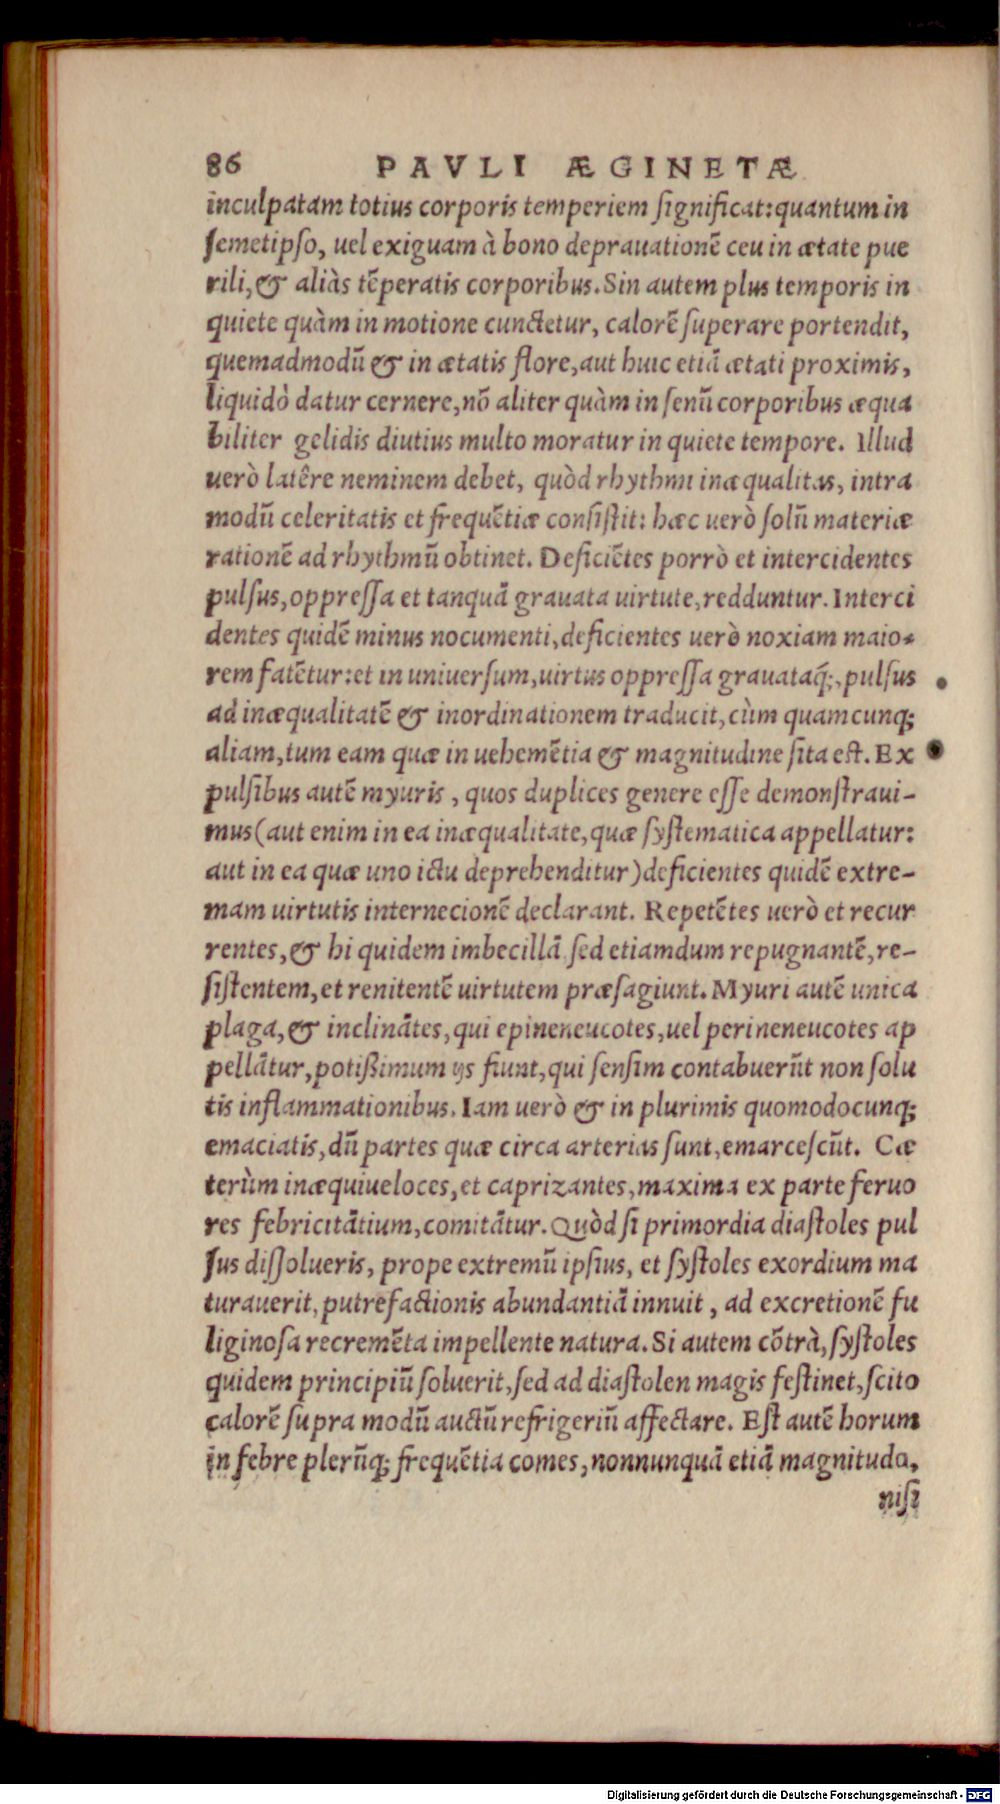 86 PAVLI ÆGINETÆ
inculpatam totius corporis temperiem ſignificat: quantum in
ſemetipſo, uel exiguam à bono deprauationē ceu in ætate pue
rili, & aliàs tēperatis corporibus. Sin autem plus temporis in
quiete quàm in motione cunctetur, calorē ſuperare portendit,
quemadmodū & in ætatis flore, aut huic etiā ætati proximis,
liquidò datur cernere, nō aliter quàm in ſenū corporibus æqua
biliter gelidis diutius multo moratur in quiete tempore. Illud
uerò latêre neminem debet, quòd rhythmi inæqualitas, intra
modū celeritatis et frequētiæ conſiſtit: hæc uerò ſolū materiæ
rationē ad rhythmū obtinet. Deficiētes porrò et intercidentes
pulſus, oppreſſa et tanquā grauata uirtute, redduntur. Interci
dentes quidē minus nocumenti, deficientes uerò noxiam maio-
rem fatētur: et in uniuerſum, uirtus oppreſſa grauataq́;, pulſus
ad inæqualitatē & inordinationem traducit, cùm quamcunq;
aliam, tum eam quæ in uehemētia & magnitudine ſita eſt. Ex
pulſibus autē myuris, quos duplices genere eſſe demonſtraui-
mus (aut enim in ea inæqualitate, quæ ſyſtematica appellatur:
aut in ea quæ uno ictu deprehenditur) deficientes quidē extre-
mam uirtutis internecionē declarant. Repetētes uerò et recur
rentes, & hi quidem imbecillā ſed etiamdum repugnantē, re-
ſiſtentem, et renitentē uirtutem præſagiunt. Myuri autē unica
plaga, & inclinātes, qui epineneucotes, uel perineneucotes ap
pellātur, potiſsimum ijs fiunt, qui ſenſim contabuerūt non ſolu
tis inflammationibus. Iam uerò & in plurimis quomodocunq;
emaciatis, dū partes quæ circa arterias ſunt, emarceſcūt. Cæ
terùm inæquiueloces, et caprizantes, maxima ex parte feruo
res febricitātium, comitātur. Quòd ſi primordia diaſtoles pul
ſus diſſolueris, prope extremū ipſius, et ſyſtoles exordium ma
turauerit, putrefactionis abundantiā innuit, ad excretionē fu
liginoſa recremēta impellente natura. Si autem cōtrà, ſyſtoles
quidem principiū ſoluerit, ſed ad diaſtolen magis feſtinet, ſcito
calorē ſupra modū auctū refrigeriū affectare. Eſt autē horum
in febre plerūq; frequētia comes, nonnunquā etiā magnitudo,
niſi
Digitalisierung gefördert durch die Deutsche Forschungsgemeinschaft - DFG